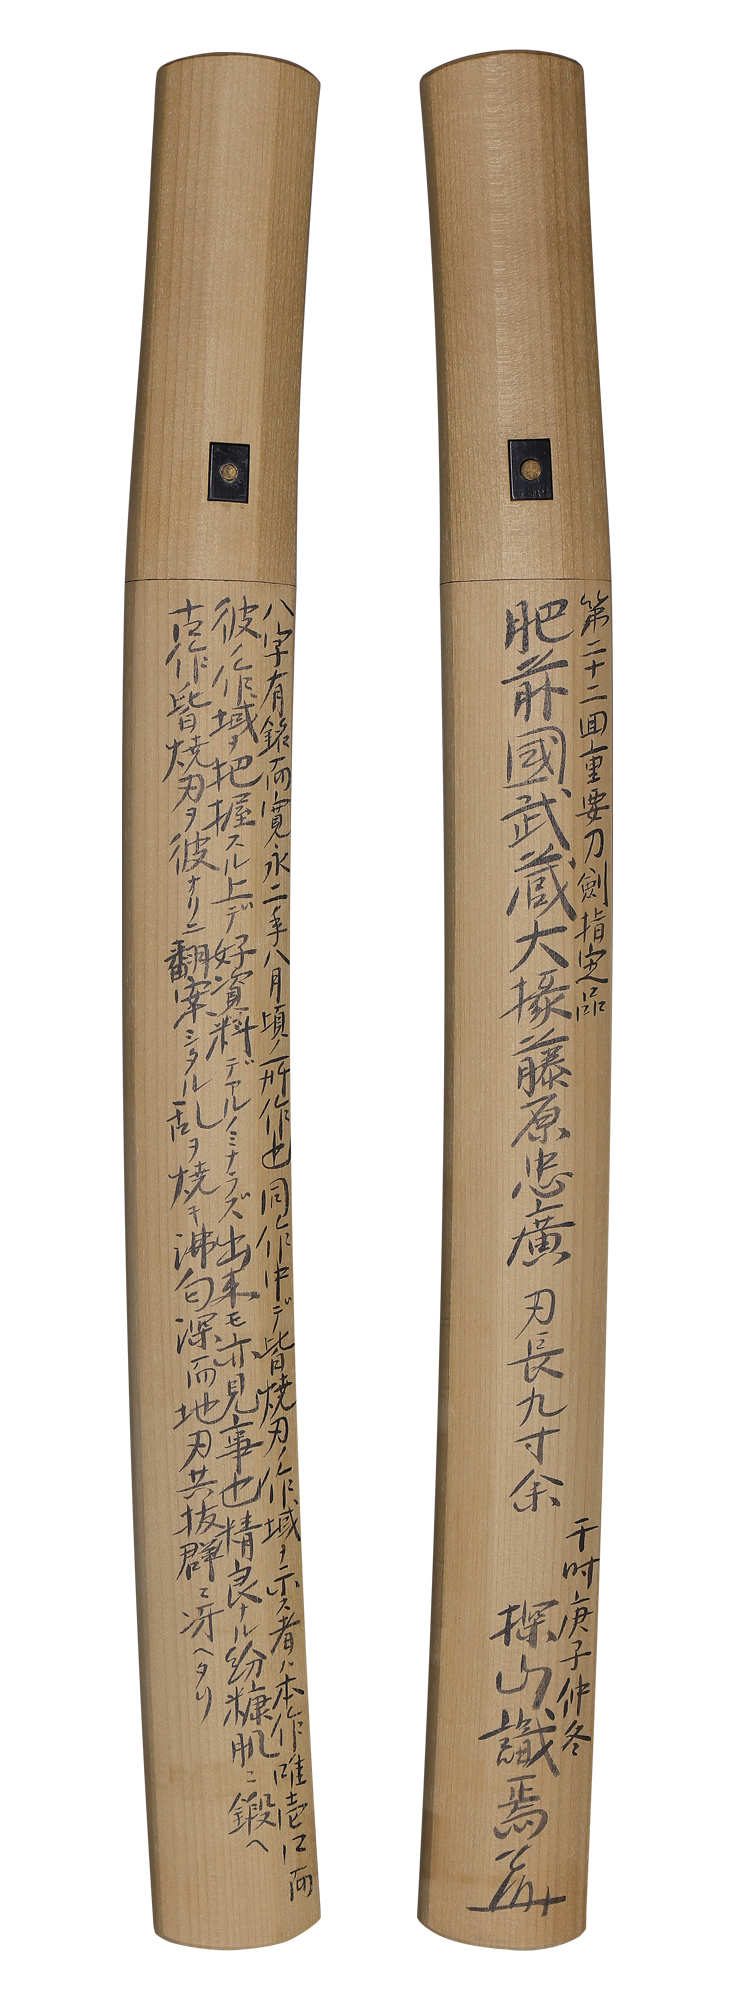 第二十二回重要刀劍指定品
肥前國武蔵大掾藤原忠廣 刃長九寸余
于時庚子仲冬
探山識焉
八字有銘而寛永二年八月頃ノ所作也同作中デ皆焼刃ノ作域ヲ示ス者ハ本作唯壱口而
彼ノ作域ヲ把握スル上デ好資料デアルノミナラズ出来モ亦見事也精良ナル粉糠肌ニ鍛ヘ
古作皆焼刃ヲ彼ナリニ翻案シタル乱ヲ焼キ沸匂深而地刃共抜群ニ冴ヘタリ